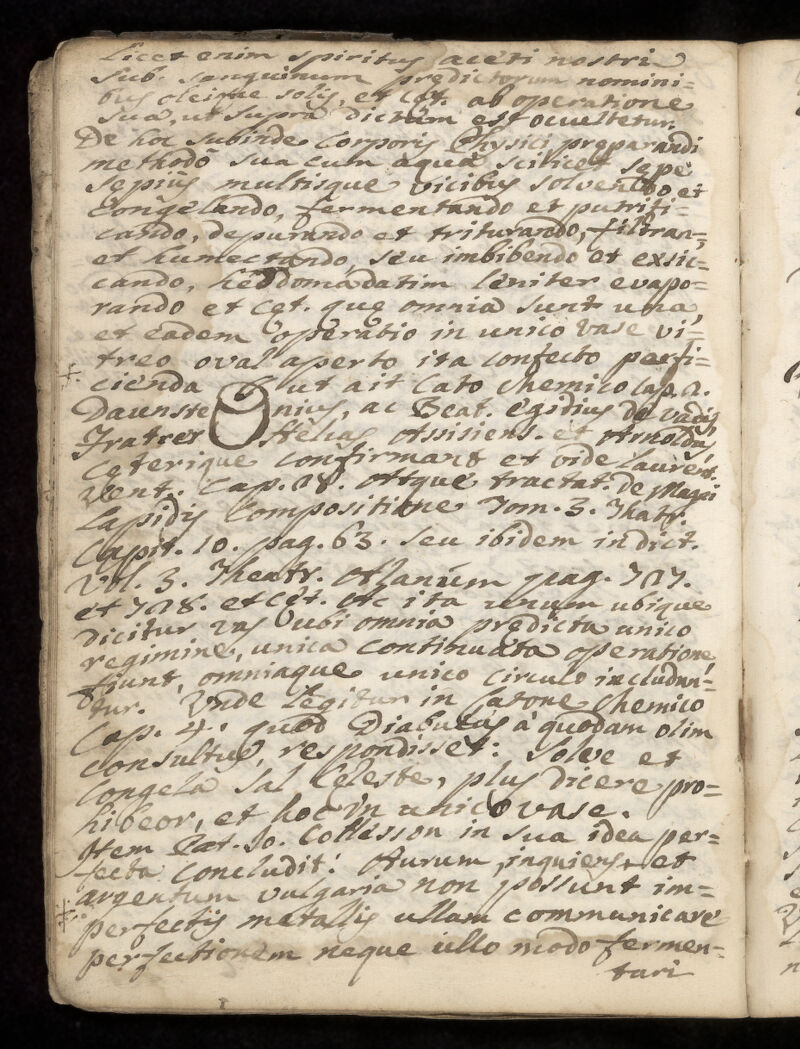 Licet enim spiritus aceti nostri
sub. sanguinum predictorum nomini-
bus oleique solis, et Cet. ab operatione
sua, ut supra dictum est occultetur.
De hoc subinde Corporis Physici preparandi
methodo sua cum aqua scilicet sepe
sepius multisque vicibus solvendo et
Congelando, fermentando et putrifi-
cando, depurando et triturando, filtran-
et humectando, seu imbibendo et exsic-
cando, hebdomadatim leniter evapo-
rando et Cet. que omnia sunt una,
et eadem operatio in unico vase vi-
treo oval aperto ita confecto perfi-
cienda ut ait Cato Chemico Cap. 2.
Daunste nius, ac Beat. Egidius de Vadis
Fratret Helias Assisiens. et Arnolda,
Ceterique confirmant et vide Laurent.
Vent. Cap. 18. Atque tractat. de Magni
Lapidis Compositione Tom. 3. Theatr.
Capit. 10. pag. 63. seu ibidem in dict.
Vol. 3. Theatr. pag. 727.
et 728. et Cet. Ac ita unum ubique
dicitur vas ubi omnia predicta unico
regimine, unica continuata operatione
fiunt, omniaque unico circulo includun-
tur. Unde legitur in Catone Chemico
Cap. 4. quod Diabutas à quodam olim
consultus, respondisset: Solve et
Congela Sal Celeste, plus dicere pro-
hibeor, et hoc in unico vase.
Item Pat. Jo. Collesson in sua idea per-
fecta concludit: Aurum, inquiens, et
argentum vulgaria non possunt im-
perfectis metallis ullam communicare
perfectionem neque ullo modo fermen-
tari